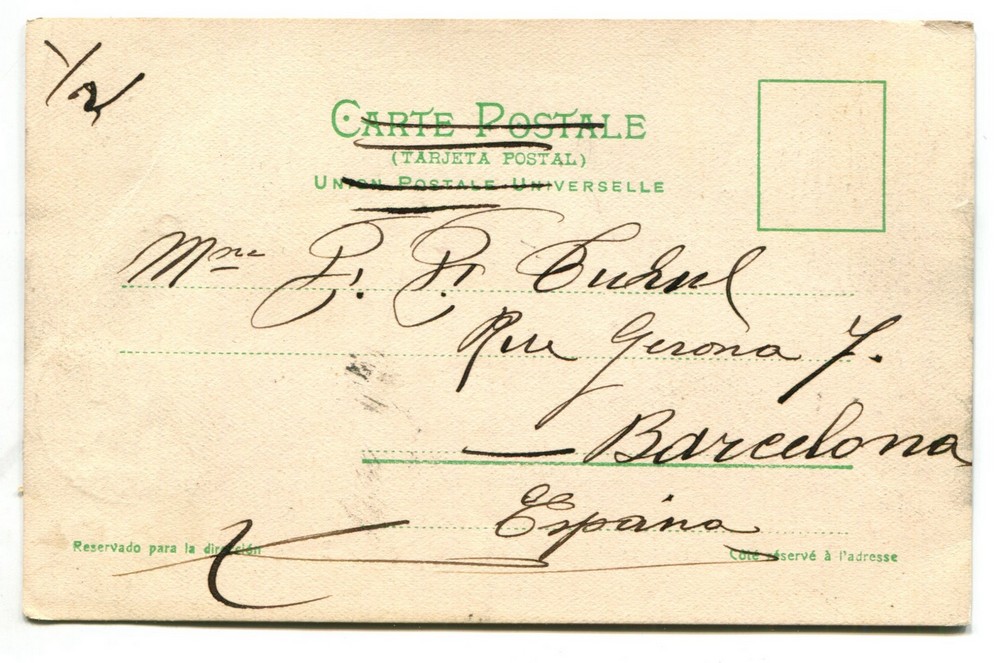 1/2
CARTE POSTALE
(TARJETA POSTAL)
UNION POSTALE UNIVERSELLE
Mme
Rue Gerona 7.
— Barcelona
España
Reservado para la dirección
Côté réservé à l'adresse